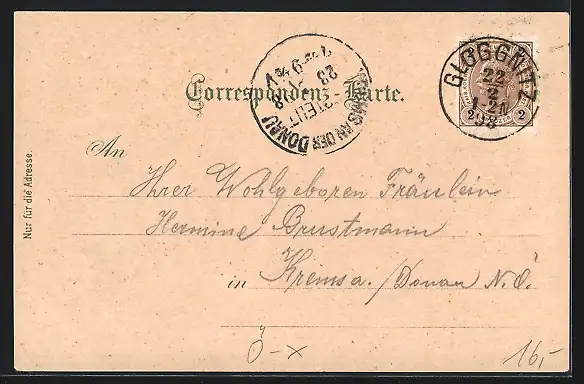 GLOGGNITZ
22
2
2 2
KREMS AN DER DONAU
BESTELLT
Correspondenz-Karte.
Nur für die Adresse.
An
Ihrer Wohlgeboren Fräulein
Hermine Brustmann
in Krems a./Donau N.Ö.
Ö-x
16,-